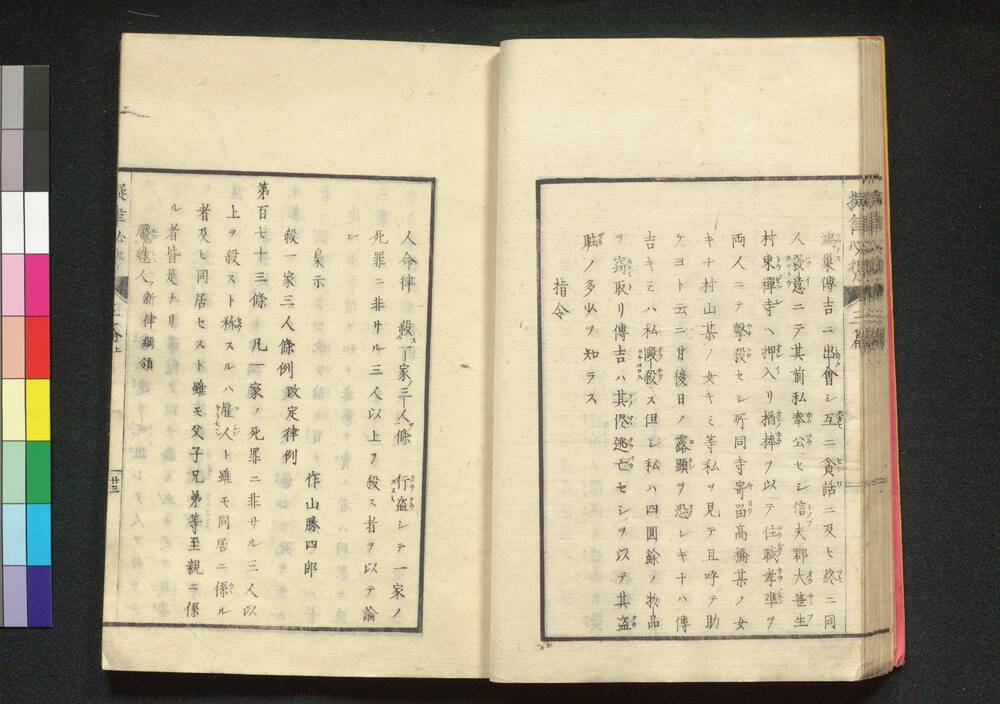 巣傳吉ニ出會シ互ニ貪話ニ及ヒ終ニ同
人發意ニテ其前私奉公セシ信夫郡大笹生
村東禪寺ヘ押入リ棒ヲ以テ住職孝準ヲ
両人ニテ擊殺セシ所同寺寄留高橋某ノ女
キチ村山某ノ女キミ等私ヲ見テ且呼テ助
ケヨト云ニ付後日ノ露顯ヲ恐レキチハ傳
吉キミハ私毆殺ス但シ私ハ四圓餘ノ物品
ヲ窃取リ傳吉ハ其侭逃亡セシヲ以テ其盗
贓ノ多少ヲ知ラス
指令
人命律 殺一家三人條 行盗シテ一家ノ
死罪ニ非サル三人以上ヲ殺ス者ヲ以テ論
シ
梟示
作山勝四郎
殺一家三人條例 改定律例
第百七十三條 凡一家ノ死罪ニ非サル三人以
上ヲ殺スト称スルハ雇人ト雖モ同居ニ係ル
者及ヒ同居セスト雖モ父子兄弟等至親ニ係
ル者皆是ナリ
人 新律綱領
三
廿三